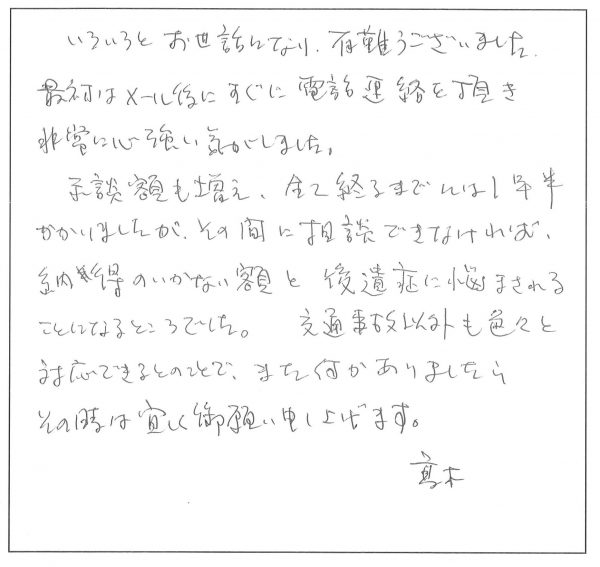 いろいろとお世話になり、有難うございました。
最初はメール後にすぐに電話連絡を頂き
非常に心強い気がしました。
示談額も増え、全て終るまでには1年半
かかりましたが、その間に相談できなければ、
納得のいかない額と後遺症に悩まされる
ことになるところでした。 交通事故以外も色々と
対応できるとのことで、また何かありましたら
その時は宜しく御願い申し上げます。
高木